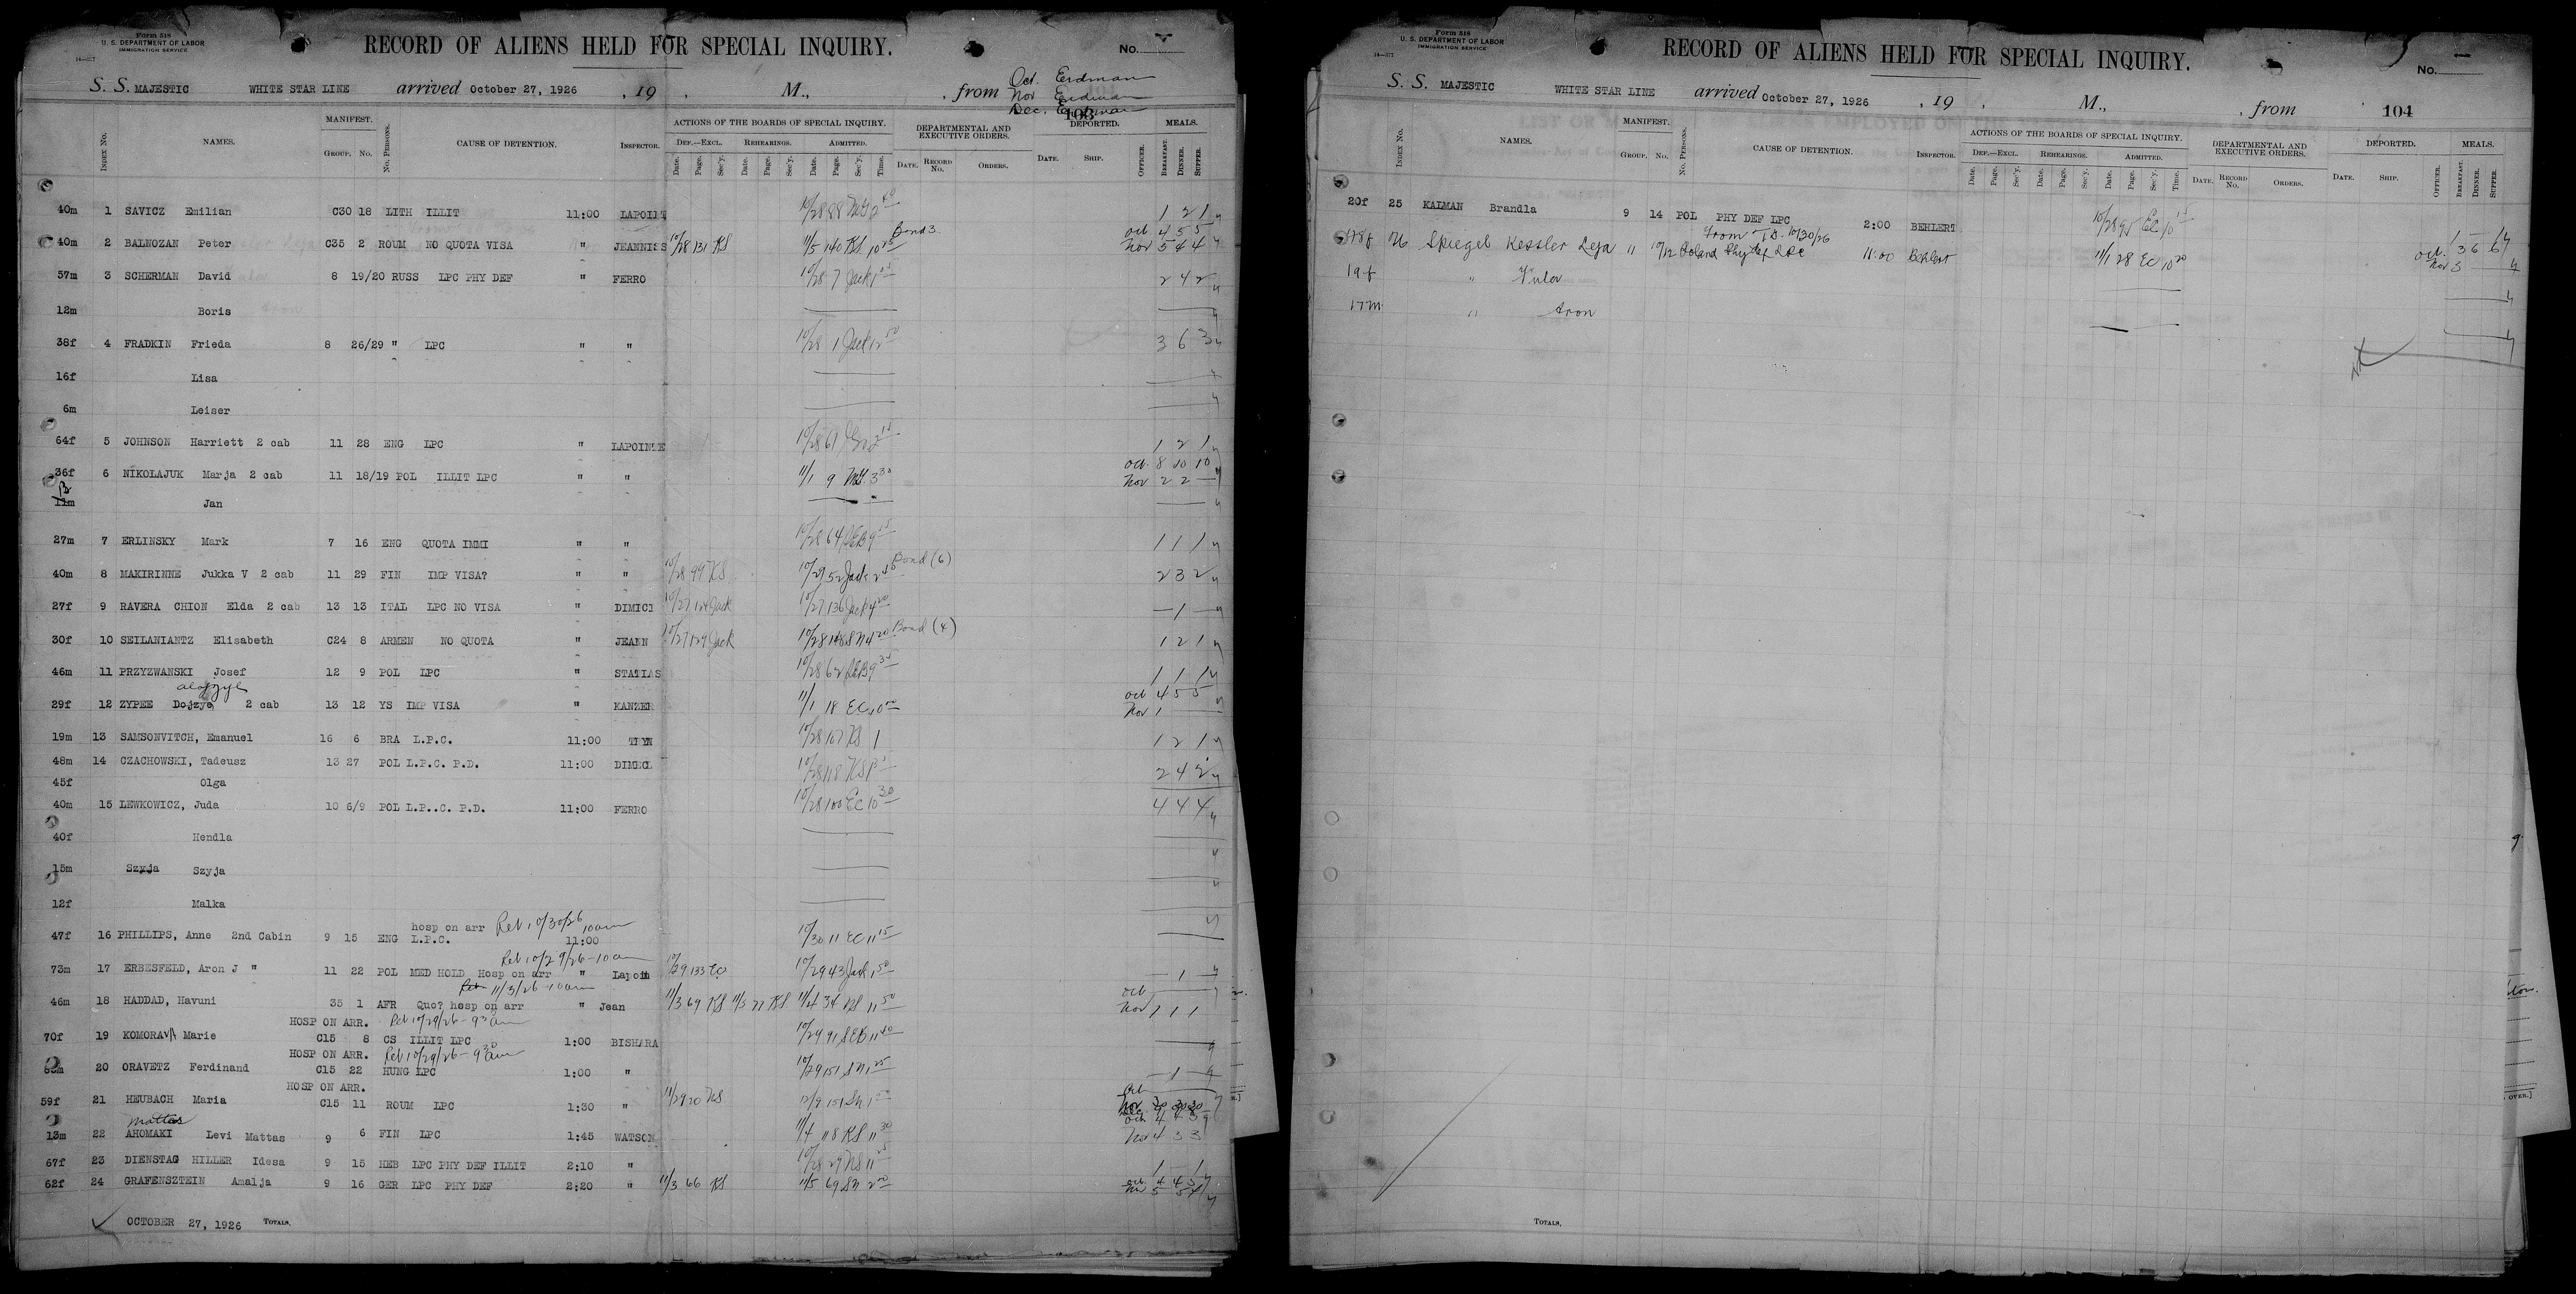 Form 518
U. S. DEPARTMENT OF LABOR
IMMIGRATION SERVICE
14—577
RECORD OF ALIENS HELD FOR SPECIAL INQUIRY.
No.
S. S. MAJESTIC WHITE STAR LINE arrived October 27, 1926 , 19 , M., , from
Oct. Erdman
Nov Erdman
Dec. Erdman
103
INDEX No. NAMES. MANIFEST. GROUP. No. No. PERSONS. CAUSE OF DETENTION. INSPECTOR. ACTIONS OF THE BOARDS OF SPECIAL INQUIRY. DEF.—EXCL. REHEARINGS. ADMITTED. Date. Page. Sec'y. Date. Page. Sec'y. Date. Page. Sec'y. Time. DEPARTMENTAL AND EXECUTIVE ORDERS. DATE. RECORD No. ORDERS. DEPORTED. DATE. SHIP. OFFICER. MEALS. BREAKFAST. DINNER. SUPPER.
40m 1 SAVICZ Emilian C30 18 LITH ILLIT 11:00 LAPOINT 10/28 88 1 2 1
40m 2 BALNOZAN Peter C35 2 ROUM NO QUOTA VISA " JEANNISS 10/28 131 KS 11/5 140 KS 10 25 Bond 3. Oct 4 5 5
Nov 5 4 4
57m 3 SCHERMAN David 8 19/20 RUSS LPC PHY DEF " FERRO 10/28 7 Jack 2 4 2
12m Boris
38f 4 FRADKIN Frieda 8 26/29 " LPC " " 10/28 1 Jack 12 50 3 6 3
16f Lisa
6m Leiser
64f 5 JOHNSON Harriett 2 cab 11 28 ENG LPC " LAPOINTE 10/28 61 1 2 1
36f 6 NIKOLAJUK Marja 2 cab 11 18/19 POL ILLIT LPC " " 11/1 9 3 30 Oct. 8 10 10
Nov 2 2 —
11m Jan
27m 7 ERLINSKY Mark 7 16 ENG QUOTA IMMI " " 10/28 64 1 1 1
40m 8 MAKIRINNE Jukka V 2 cab 11 29 FIN IMP VISA? " " 10/28 99 KS 10/29 52 Jack Bond (6) 2 3 2
27f 9 RAVERA CHION Elda 2 cab 13 13 ITAL LPC NO VISA " DIMICI 10/27 124 Jack 10/27 136 Jack 4 20 — 1 —
30f 10 SEILANIANTZ Elisabeth C24 8 ARMEN NO QUOTA " JEANN 10/27 129 Jack 10/28 4 20 Bond (4) 1 2 1
46m 11 PRZYZWANSKI Josef 12 9 POL LPC " STATIAS 10/28 62 1 1 1
29f 12 ZYPEE Dojzye 2 cab 13 12 YS IMP VISA " KANZER 11/1 18 EC 10 Oct 4 5 5
Nov 1
19m 13 SAMSONVITCH, Emanuel 16 6 BRA L.P.C. 11:00 10/28 107 KS 1 1 2 1
48m 14 CZACHOWSKI, Tadeusz 13 27 POL L.P.C. P.D. 11:00 DIMECI 10/28 118 KS 2 4 2
45f Olga
40m 15 LEWKOWICZ, Juda 10 6/9 POL L.P..C. P.D. 11:00 FERRO 10/28 100 EC 10 30 4 4 4
40f Hendla
15m Szyja Szyja
12f Malka
hosp on arr Ret 10/30/26 10am
47f 16 PHILLIPS, Anne 2nd Cabin 9 15 ENG L.P.C. 11:00 10/30 11 EC 11 15
Ret 10/29/26-10am
73m 17 ERBESFELD, Aron J " 11 22 POL MED HOLD Hosp on arr " Lapoin 10/29 133 EC 10/29 43 Jack 1 50 — 1 —
Ret 11/3/26 10am
46m 18 HADDAD, Havuni 35 1 AFR Quo? hosp on arr " Jean 11/3 69 KS 11/3 77 KS 11/4 34 11 50 Oct
Nov 1 1 1
HOSP ON ARR. Ret 10/29/26-9 30 am
70f 19 KOMORAVA Marie C15 8 CS ILLIT LPC 1:00 BISHARA 10/29 91 11 40
HOSP ON ARR. Ret 10/29/26-9 30 am
20 ORAVETZ Ferdinand C15 22 HUNG LPC 1:00 " 10/29 151 — 1
HOSP ON ARR.
59f 21 HEUBACH Maria C15 11 ROUM LPC 1:30 " 11/29 20 12/9 151 Oct
Nov 30 30 30
Mattas
13m 22 AHOMAKI Levi Mattas 9 6 FIN LPC 1:45 WATSON 11/4 118 KS 11 30
Nov 4 3 3
67f 23 DIENSTAG HILLER Idesa 9 15 HEB LPC PHY DEF ILLIT 2:10 " 10/28 29 1 — 1
62f 24 GRAFENSZTEIN Amalja 9 16 GER LPC PHY DEF 2:20 " 11/3 66 KS 11/5 69 Oct. 4 4 5
Nov 5 5 4
OCTOBER 27, 1926 TOTALS.
Form 518
U. S. DEPARTMENT OF LABOR
IMMIGRATION SERVICE
14—577
RECORD OF ALIENS HELD FOR SPECIAL INQUIRY.
No.
S. S. MAJESTIC WHITE STAR LINE arrived October 27, 1926 , 19 , M., , from 104
INDEX No. NAMES. MANIFEST. GROUP. No. No. PERSONS. CAUSE OF DETENTION. INSPECTOR. ACTIONS OF THE BOARDS OF SPECIAL INQUIRY. DEF.—EXCL. REHEARINGS. ADMITTED. Date. Page. Sec'y. Date. Page. Sec'y. Date. Page. Sec'y. Time. DEPARTMENTAL AND EXECUTIVE ORDERS. DATE. RECORD No. ORDERS. DEPORTED. DATE. SHIP. OFFICER. MEALS. BREAKFAST. DINNER. SUPPER.
20f 25 KALMAN Brandla 9 14 POL PHY DEF LPC 2:00 BEHLERT 10/28 95 EC 10 15 1 — 1
From T.D. 10/30/26
48f 26 Spiegel Kessler Leja " 10/12 Poland Phy def LPC 11:00 Behlert 11/1 28 EC 10 20 Oct. 3 6 6
Nov 3
19f " Fula
17m " Aron
TOTALS.